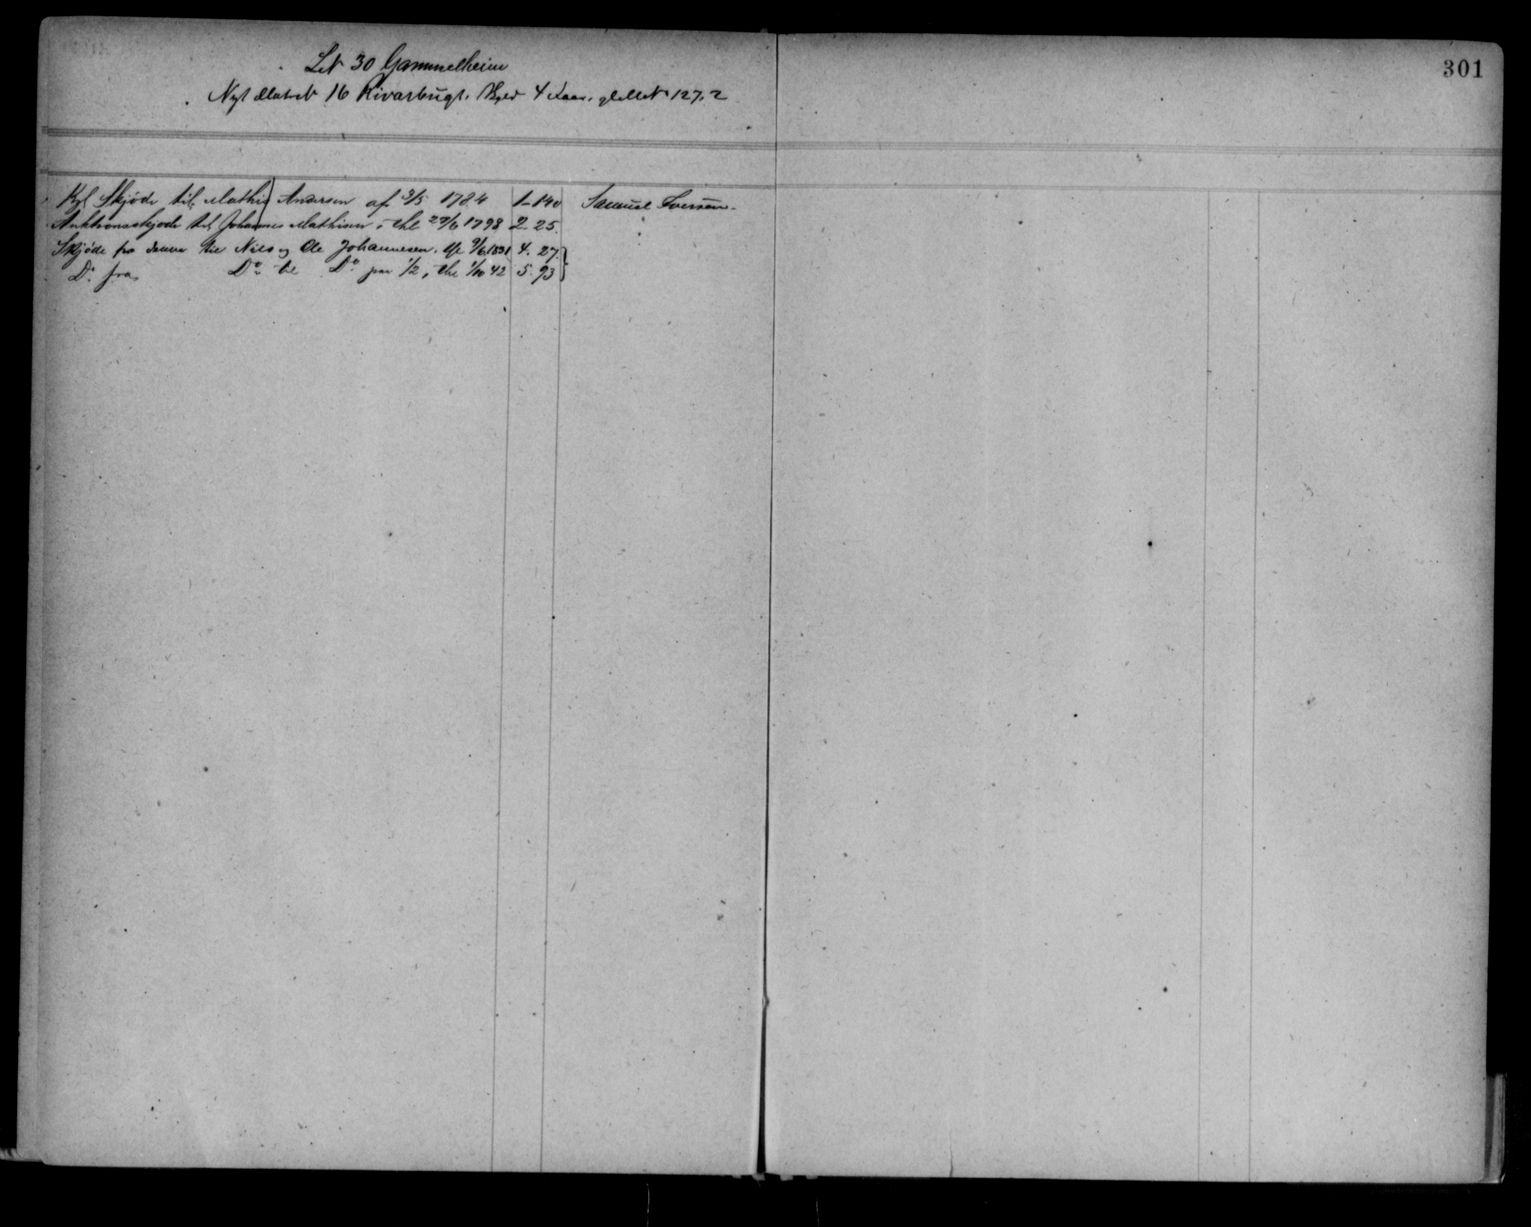 301
LN 30 Gammelheim
Nyt Matr N 16 Kivarbugt. Skyld 4 Kaar, gl Matr N 127, 2
Kgl Skjøde til Mathis Andersen af 3/5 1784 1-140 Samuel Iversen.
Auktionsskjøde til Johannes Mathisen, thl 22/6 1798 2. 25.
Skjøde fra denne til Nils og Ole Johannesen. 9/6 1831 4. 27
Do. fra Do. til Do. paa 1/2, thl 1/10 42 5. 93